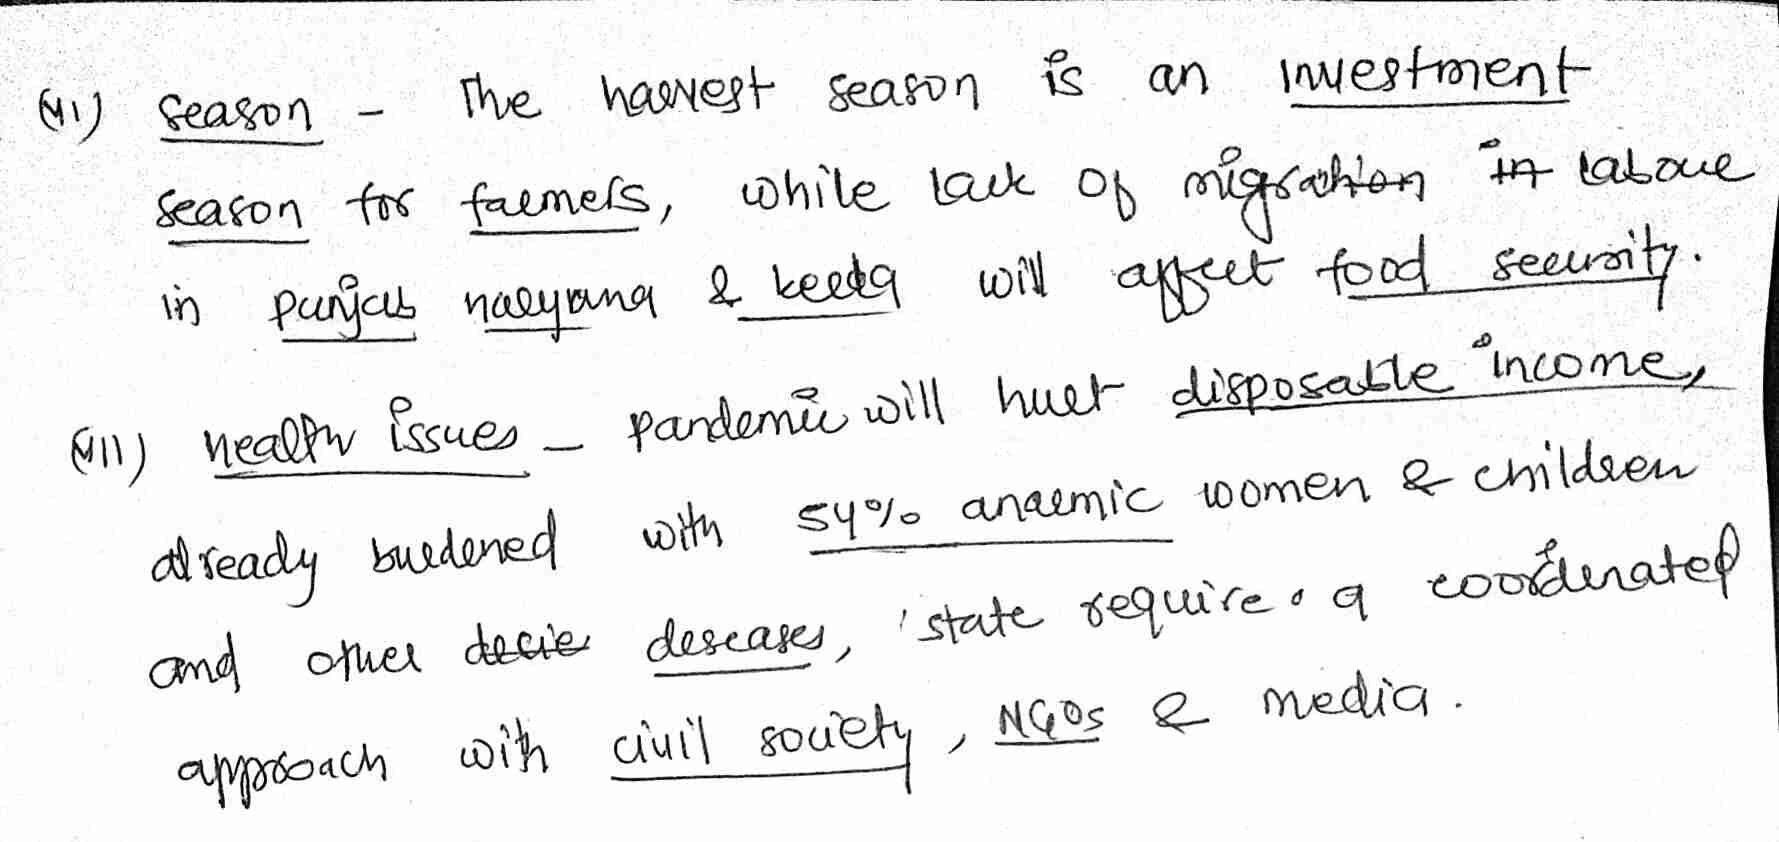 (vi) Season - The harvest season is an investment
season for farmers, while lack of migration in labour
in Punjab Haryana & Kerala will affect food security.
(vii) Health issues - Pandemic will hurt disposable income,
already burdened with 54% anaemic women & children
and other decie deseases, state require a coordinated
approach with civil society, NGOs & media.